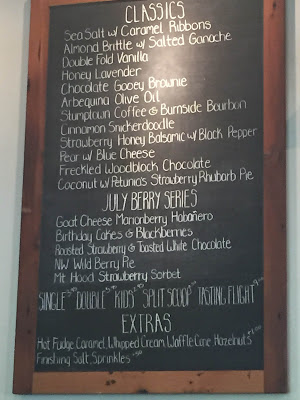 CLASSICS
Sea Salt w/ Caramel Ribbons
Almond Brittle w/ Salted Ganache
Double Fold Vanilla
Honey Lavender
Chocolate Gooey Brownie
Arbequina Olive Oil
Stumptown Coffee & Burnside Bourbon
Cinnamon Snickerdoodle
Strawberry Honey Balsamic w/ Black Pepper
Pear w/ Blue Cheese
Freckled Woodblock Chocolate
Coconut w/ Petunia's Strawberry Rhubarb Pie
JULY BERRY SERIES
Goat Cheese Marionberry Habañero
Birthday Cakes & Blackberries
Roasted Strawberry & Toasted White Chocolate
NW Wild Berry Pie
Mt Hood Strawberry Sorbet
SINGLE DOUBLE KIDS SPLIT SCOOP TASTING FLIGHT
EXTRAS
Hot Fudge, Caramel, Whipped Cream, Waffle Cone, Hazelnuts
Finishing Salt, Sprinkles .50